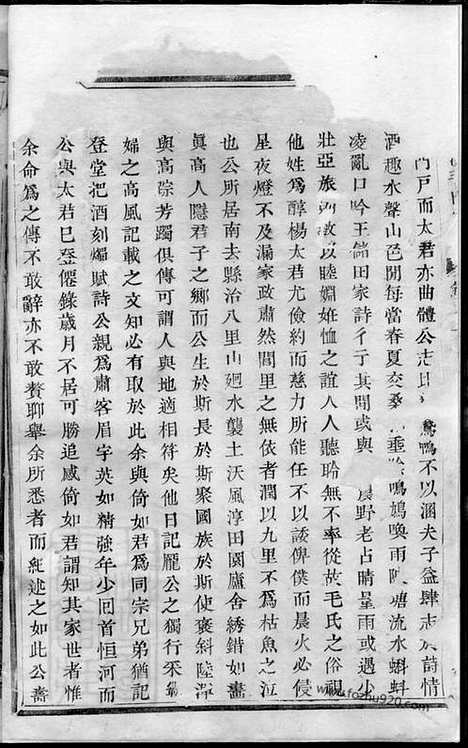 門戶而太君亦曲體公志鵞鴨不以溷夫子益肆志於詩情
酒趣水聲山色間每當春夏交桑垂鳴鳩喚雨陂塘流水蝌蚪
凌亂口吟王儲田家詩彳亍其間或與農野老占晴量雨或遇少
壯亞旅以睦婣姙恤之誼人人聽聆無不率從故毛氏之俗視
他姓為醇楊太君尤儉約而慈力所能任不以諉俾僕而晨火必侵
星夜燈不及漏家政肅然閭里之無依者潤以九里不為枯魚之泣
也公所居南去縣治八里山廻水襲土沃風淳田園廬舍綉錯如畵
眞高人隱君子之鄉而公生於斯長於斯聚國族於斯使褒斜陸渾
與高踪芳躅俱傳可謂人與地適相符矣他日記龐公之獨行采鴻
婦之高風記載之文知必有取於此余與倚如君為同宗兄弟猶記
登堂把酒刻燭賦詩公親為肅客眉宇英如精強年少回首恒河而
公與太君已登僊錄歲月不居可勝追感倚如君謂知其家世者惟
余命為之傳不敢辭亦不敢贅聊舉余所悉者而紀述之如此公壽
www.fozhu920.com